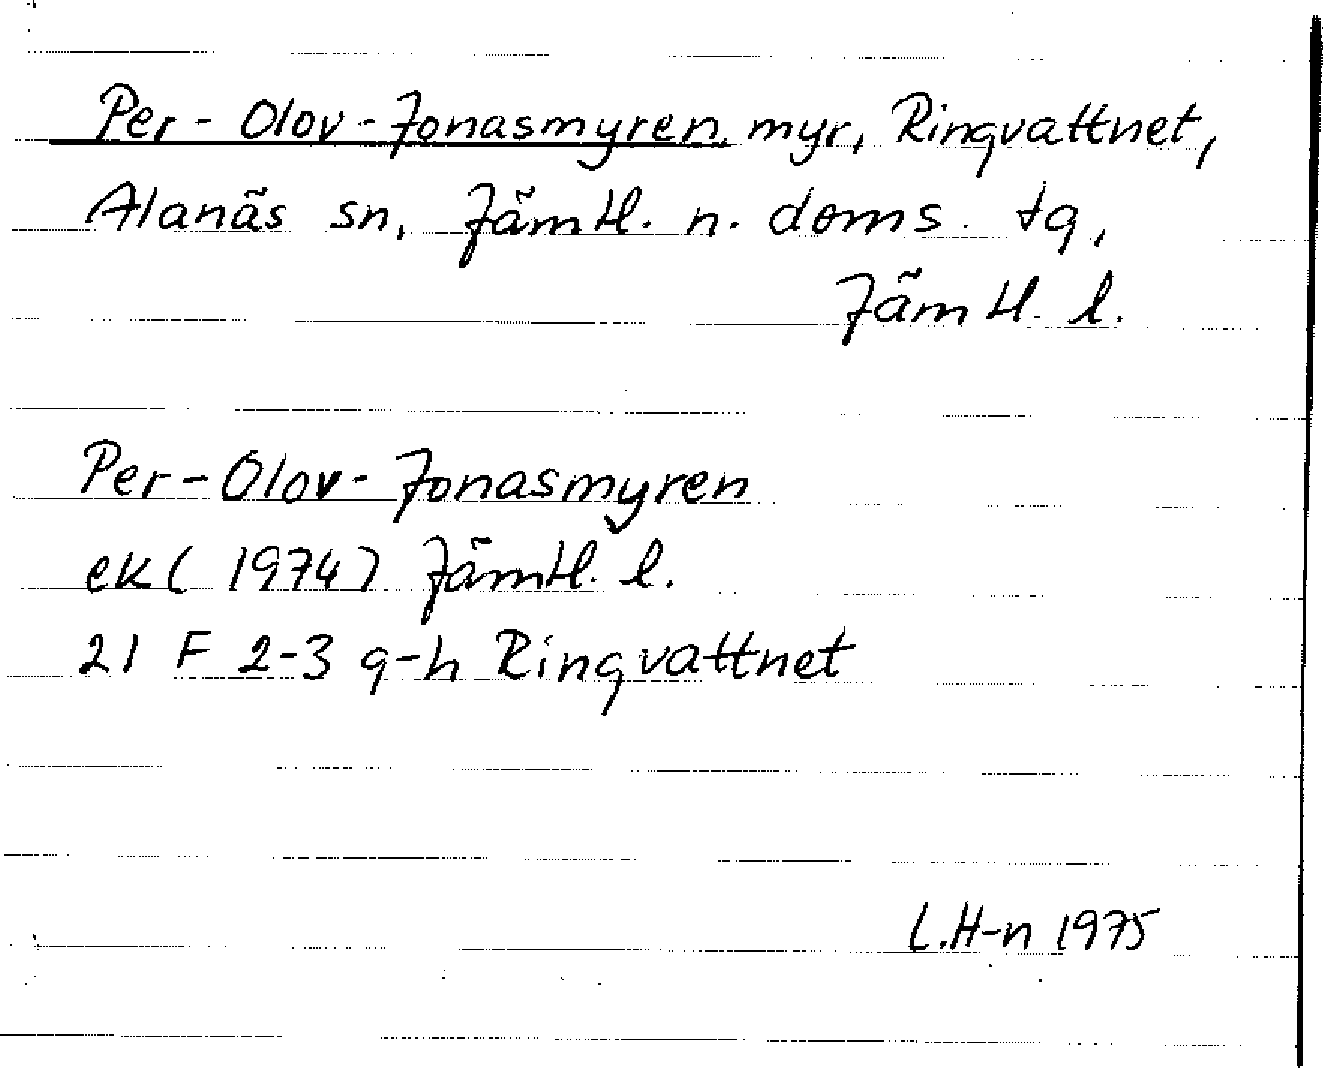 Per-Olov-Jonasmyren, myr, Ringvattnet,
Alanäs sn, Jämtl. n. doms. tg,
Jämtl. l.
Per-Olov-Jonasmyren
ek (1974) Jämtl. l.
21 F 2-3 g-h Ringvattnet
L.H-n 1975